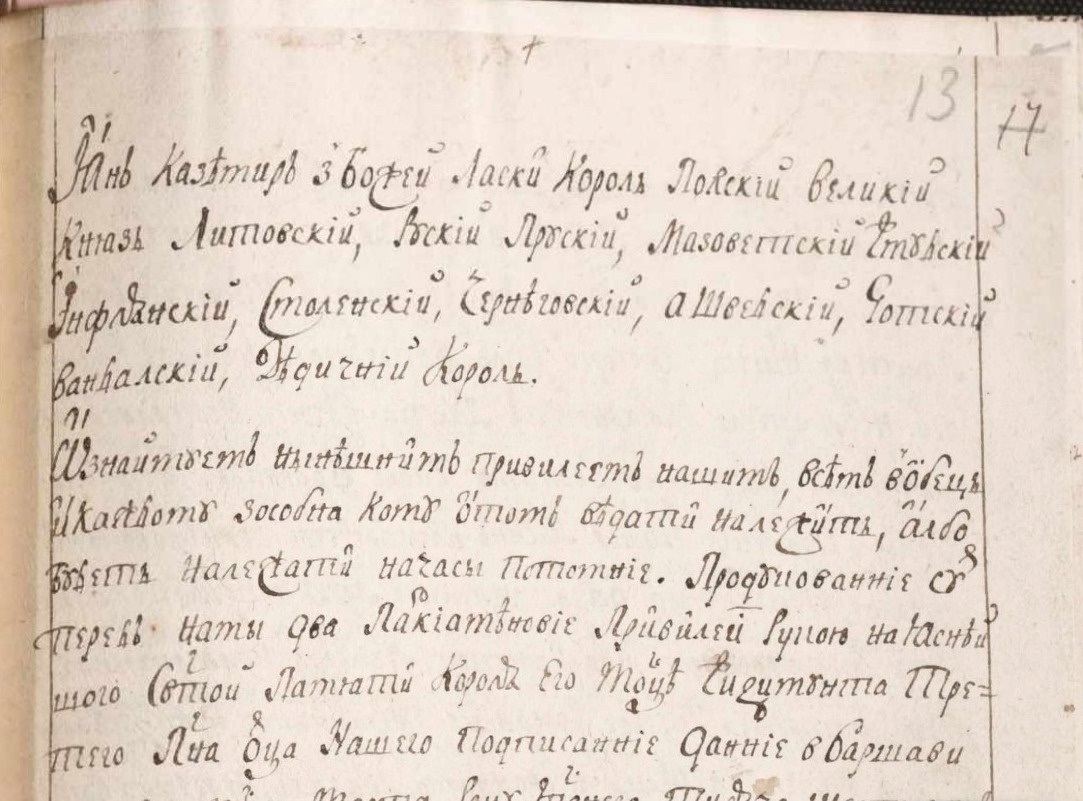 13 17
Янъ Казѣмиръ з Божей Ласки Король Полскій великій
Князь Литовскій, Рускій Прускій, Мазоветскій Жмудскій
Инфлѧнскій, Смоленскій, Чернѣговскій, а Шведскій, Готскій
вандалскій, Дѣдичній Король.
Ѡзнаймуемъ нынѣшнимъ привилеемъ нашимъ, всѣмъ вобецъ
и каждому зособна кому ѡтомъ вѣдати належитъ, албо
будетъ належати начасы потомніе. Продукованніе су
передъ нами два Паркгаменовіе Привилей Рукою наяснѣй
шого Светой памѧти Королѧ Его Млцѣ Жикгимунта Тре=
тего Пна Ѻца Нашего подписанніе данніе в Варшави